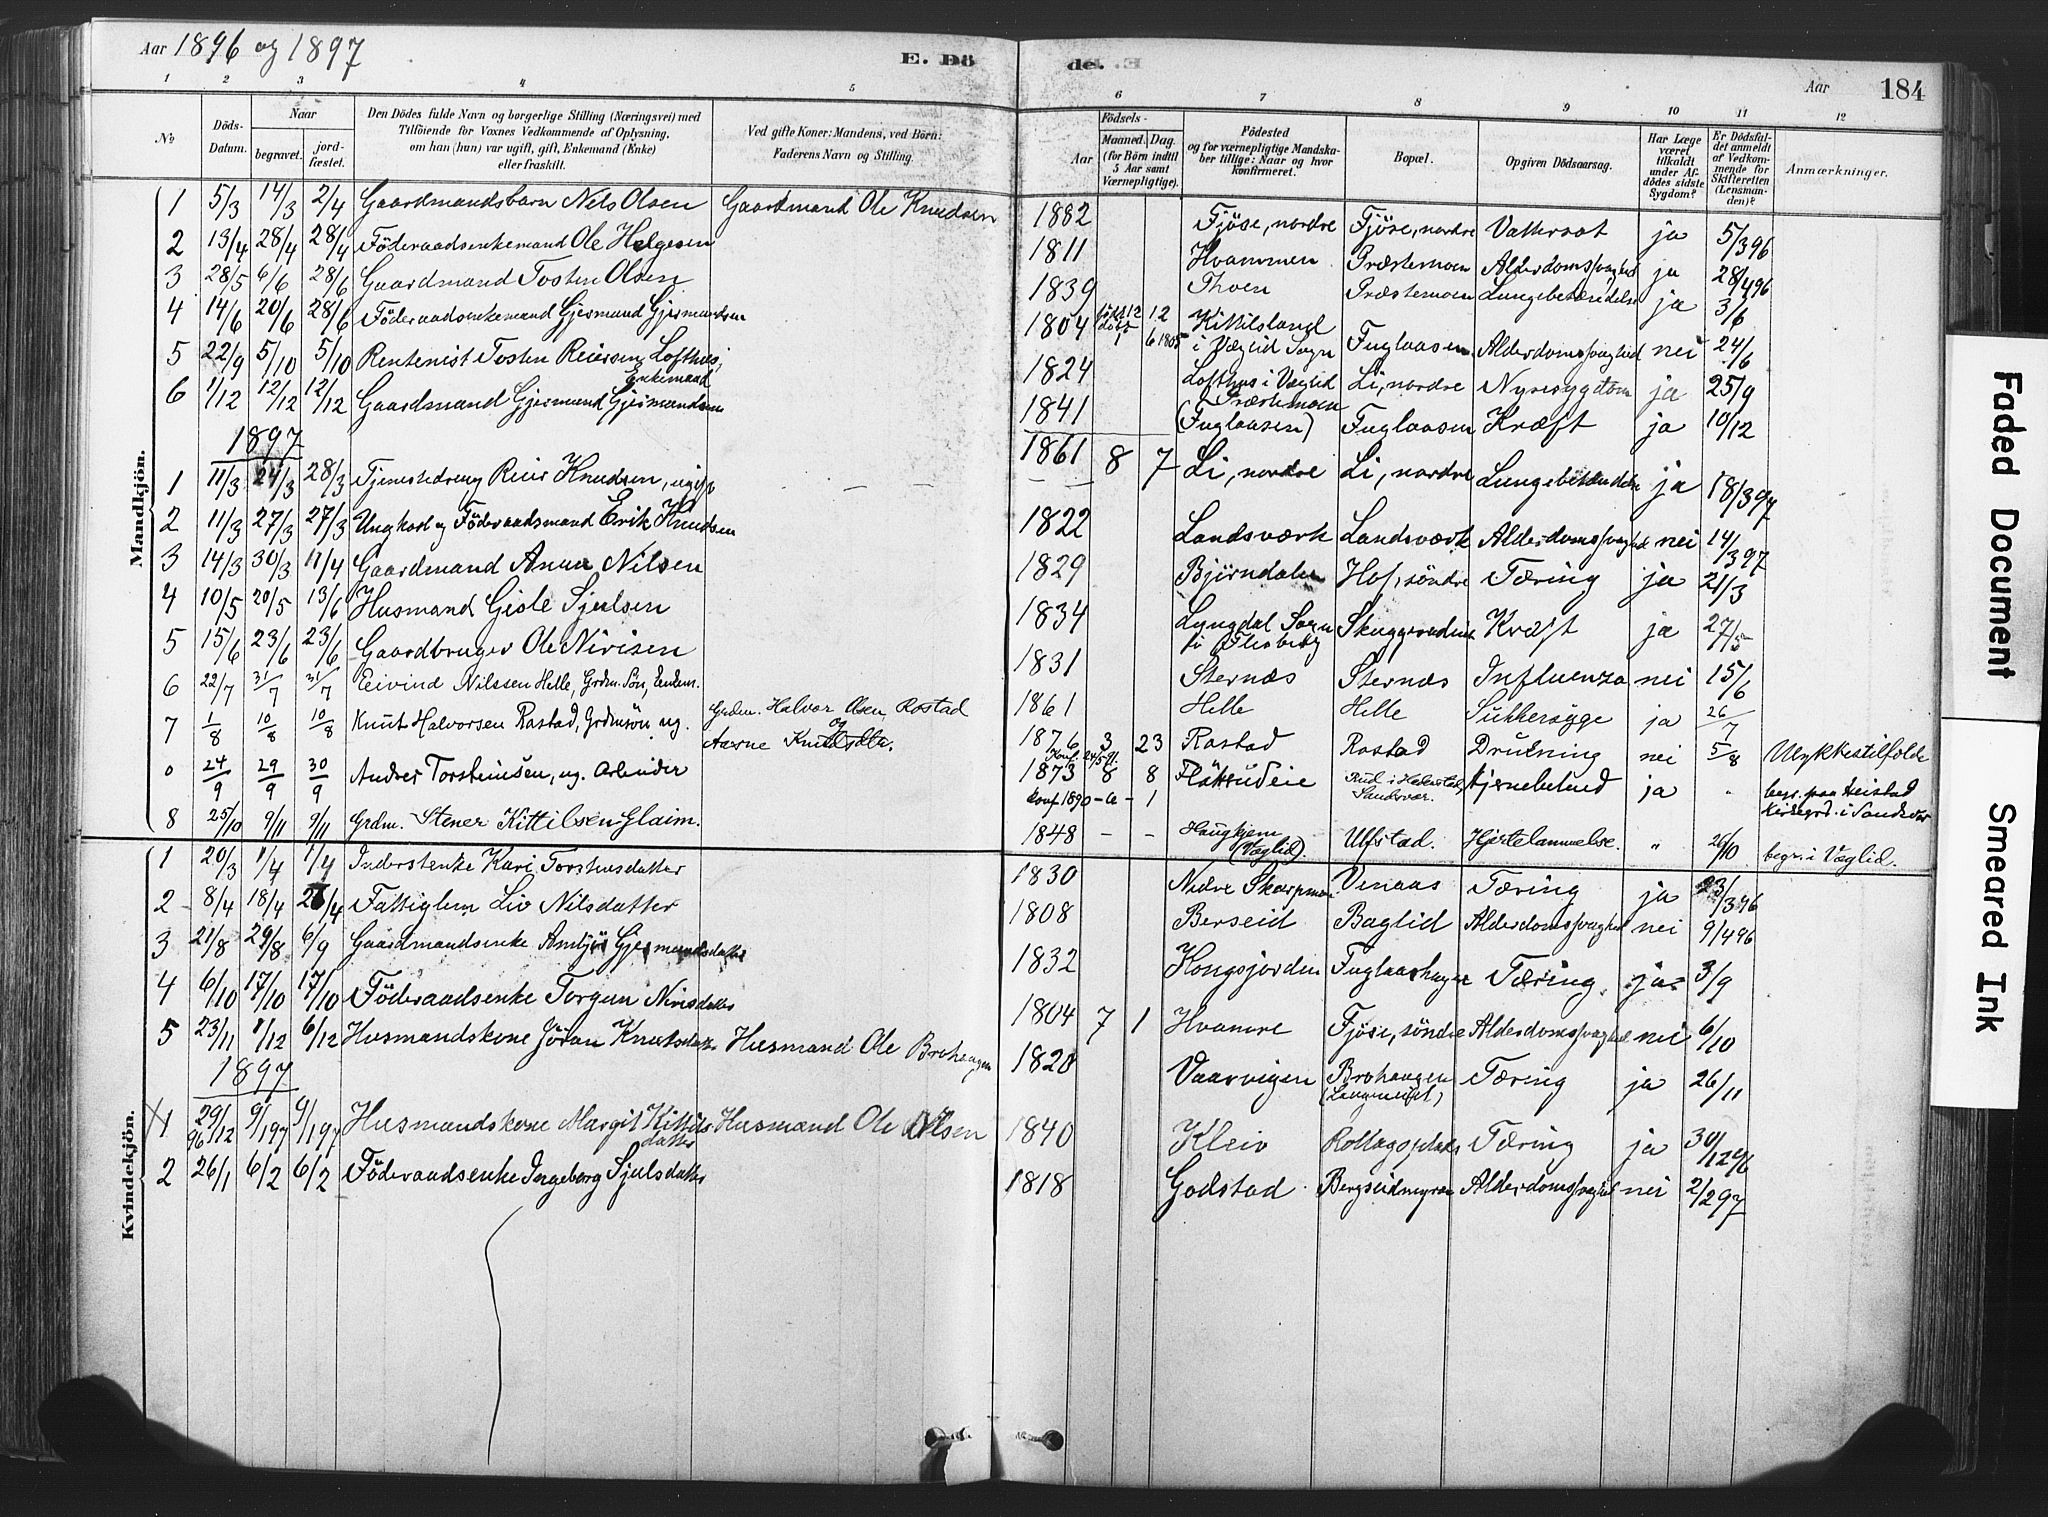 Aar 1896 og 1897
E. Dö
de.
Aar
184
1 2 3 4 5 6 7 8 9 10 11 12
No
Döds-Datum.
Naar
begravet.
jord-fæstet.
Den Dödes fulde Navn og borgerlige Stilling (Næringsvei) med
Tilföiende for Voxnes Vedkommende af Oplysning.
om han (hun) var ugift, gift, Enkemand (Enke)
eller fraskilt.
Ved gifte Koner: Mandens, ved Börn:
Faderens Navn og Stilling.
Födsels-
Aar
Maaned. Dag.
(for Börn indtil
5 Aar samt
Værnepligtige).
Födested
og for værnepligtige Mandska-
ber tillige: Naar og hvor
konfirmeret.
Bopæl.
Opgiven Dödsaarsag.
Har Læge
været
tilkaldt
under Af-
dödes sidste
Sygdom?
Er Dödsfal-
det anmeldt
af Vedkom-
mende for
Skifteretten
(Lensman-
den)?
Anmærkninger.
Mandkjön.
1 5/3 14/3 2/4 Gaardmandsbarn Nils Olsen Gaardmand Ole Knudsen 1882 Fjöse, nordre Fjöse, nordre Vattersot ja 5/3 96
2 13/4 28/4 28/4 Föderaadsenkemand Ole Helgesen 1811 Hvammen Præstemoen Alderdomssvaghed ja 28/4 96
3 28/5 6/6 28/6 Gaardmand Tosten Olsen 1839 Thoen Præstemoen Lungebetændelse ja 3/6
4 14/6 20/6 28/6 Föderaadsenkemand Gjesmund Gjesmundsen 1804 födt 12 12 Kittilsland
6 1805 i Væglid Sogn Fuglaasen Alderdomssvaghed nei 24/6
5 22/9 5/10 5/10 Rentenist Tosten Reiersen Lofthus, Enkemand 1824 Lofthus i Væglid Li, nordre Nyresygdom ja 25/9
6 1/12 12/12 12/12 Gaardmand Gjesmund Gjesmundsen 1841 Præstemoen
(Fuglaasen) Fuglaasen Kræft ja 10/12
1897
1 11/3 24/3 28/3 Tjenestedreng Reier Knudsen, ugift — — 1861 8 7 Li, nordre Li, nordre Lungebetændelse ja 18/3 97
2 11/3 27/3 27/3 Ungkarl og Föderaadsmand Erik Knudsen 1822 Landsværk Landsværk Alderdomssvaghed nei 14/3 97
3 14/3 30/3 11/4 Gaardmand Anun Nilsen 1829 Björndalen Hof, söndre Tæring ja 21/3
4 10/5 20/5 13/6 Husmand Gisle Sjulsen 1834 Lyngdal Sogn
i Flesberg Kræft ja 27/5
5 15/6 23/6 23/6 Gaardbruger Ole Nirisen 1831 Sternæs Sternæs Influenza nei 15/6
6 22/7 31/7 31/7 Eivind Nilssen Helle, Grdm. Sön, 1861 Helle Helle Sukkersyge ja 26/7
7 1/8 10/8 10/8 Knut Halvorsen Rostad, Grdmsön ug. Grdm. Halvor Olsen Rostad
og
Aasne Knudsdtr. 1876 3 23 Rostad Rostad Drukning nei 5/8 Ulykkestilfælde
0 24/9 29/9 30/9 Andres Torsteinsen, ug. Arbeider 1873 8 8
konf 1890 Sandsvær. Hjernebetænd ja " begr. paa Heistad
Kirkegrd. i Sandsvær
8 25/10 9/11 9/11 Grdm. Stener Kittilsen Glaim. 1848 — — (Væglid). Ulfstad. Hjertelammelse. " 26/10 begr. i Væglid.
Kvindekjön.
1 20/3 1/4 1/4 Inderstenke Kari Torstensdatter 1830 Nedre Skarpmoen Venaas Tæring ja 23/3 96
2 8/4 18/4 Fattiglem Liv Nilsdatter 1808 Berseid Baglid Alderdomssvaghed nei 9/4 96
3 21/8 29/8 6/9 Gaardmandsenke Gjesmundsdatter 1832 Kongsjorden Fuglaashagen Tæring, ja 3/9
4 6/10 17/10 17/10 Föderaadsenke Torgun Nirisdatter 1804 7 1 Hvamre Fjöse, söndre Alderdomssvaghed nei 6/10
5 23/11 1/12 6/12 Husmandskone Jöran Knutsdatr. Husmand Ole Brohaugen 1820 Vaarvigen Brohaugen Tæring ja 26/11
1897
1 29/12 96 9/1 97 9/1 97 Husmandskone Margit Kittils
datter Husmand Ole Olsen 1840 Kleiv Tæring ja 30/12 96
2 26/1 6/2 6/2 Föderaadsenke Ingeborg Sjulsdatter 1818 Godstad Bergseidmyren Alderdomssvaghed nei 2/2 97
Faded Document
Smeared Ink